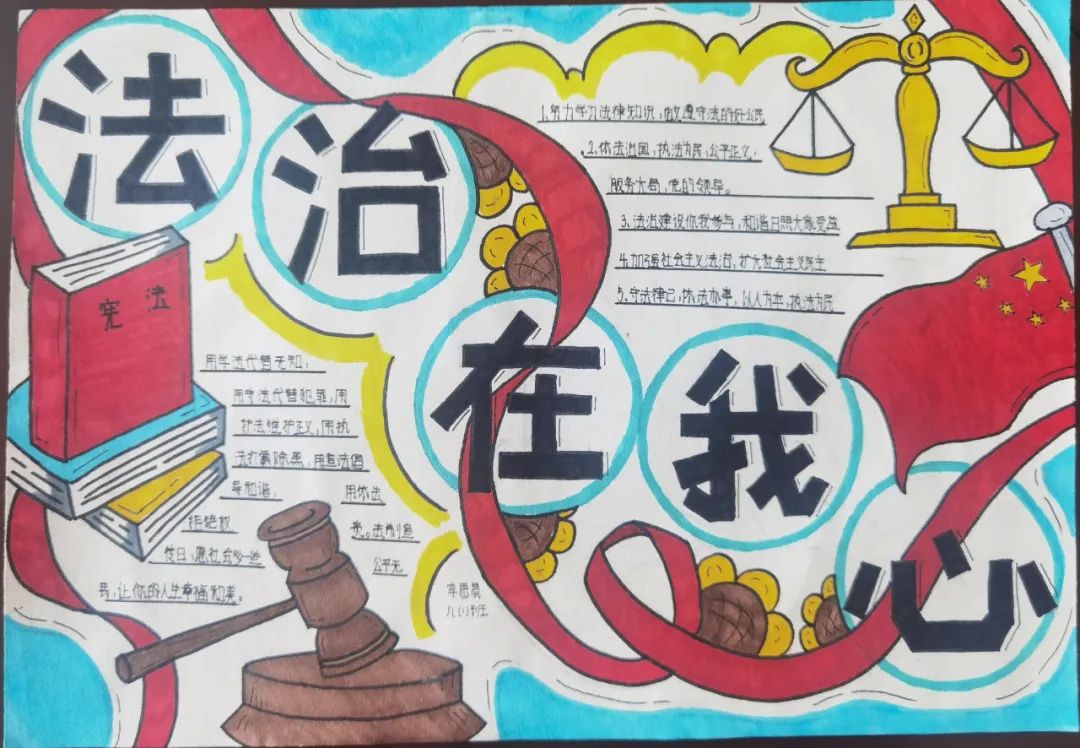 法治在我心
宪法
1.努力学习法律知识，做遵守法的好公民
2.依法治国，执法为民，公平正义，
服务大局，党的领导。
3.法治建设你我参与，和谐日照大家受益
4.加强社会主义法治，扩大社会主义民主
5.守法律己，依法办事，以人为本，执法为民
用学法代替无知，
用守法代替犯罪，用
护法维护正义，用执
法打霸除黑，用普法倡
导和谐，
用依法
拒绝权
责。法制宣
传日，愿社会少一些
公平无
民，让你的人生幸福和美。
李思晨
八(1)班